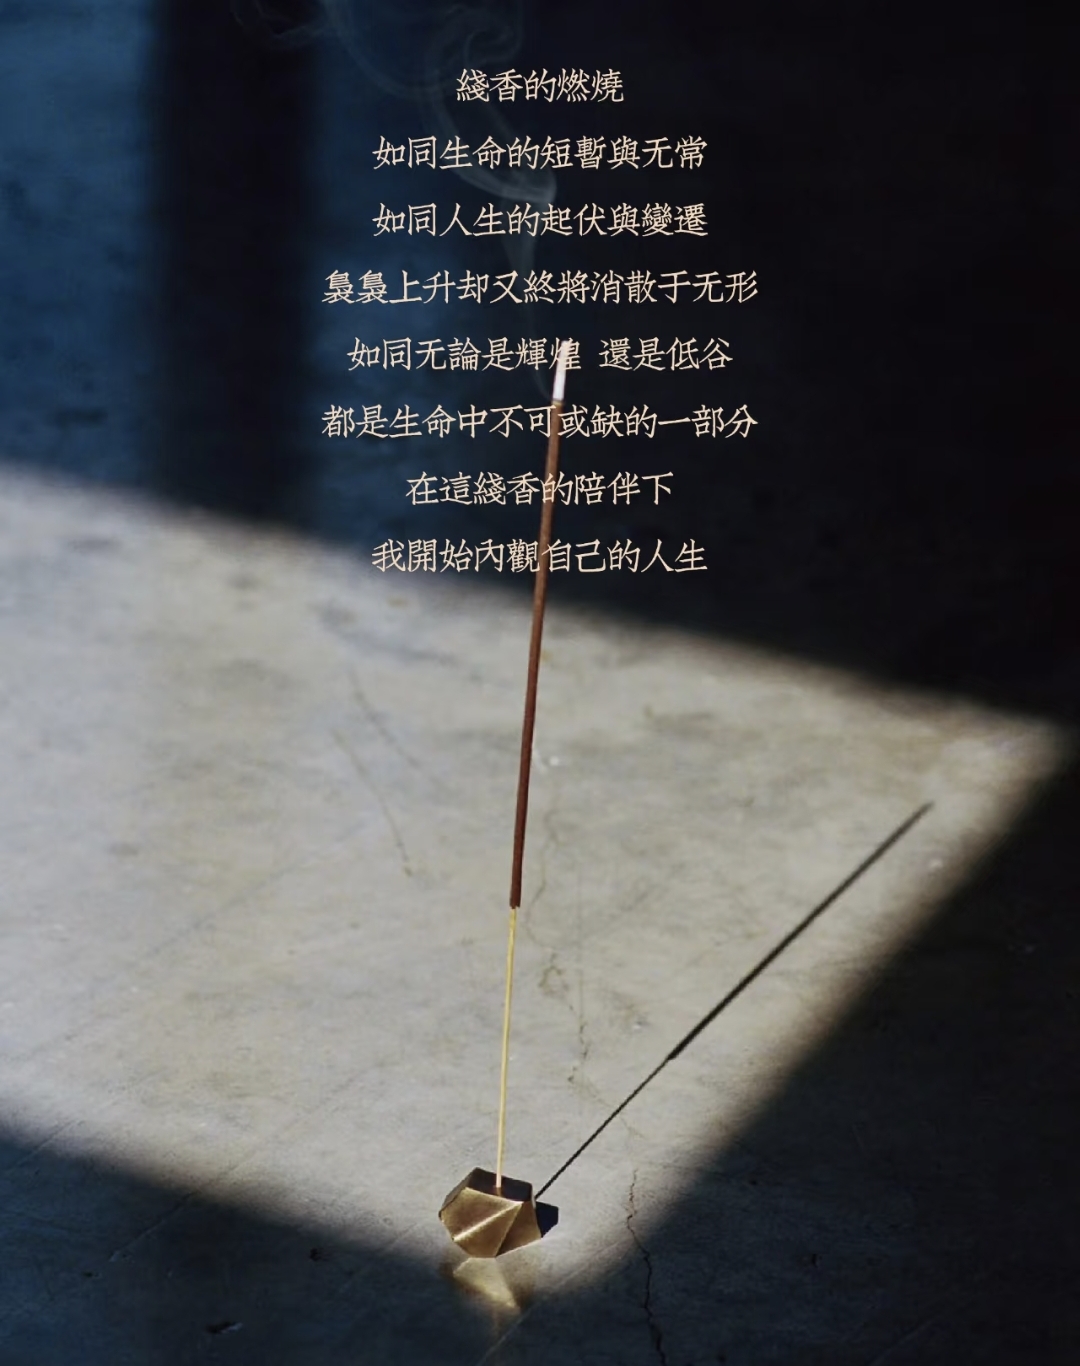 綫香的燃燒
如同生命的短暫與无常
如同人生的起伏與變遷
裊裊上升却又終將消散于无形
如同无論是輝煌 還是低谷
都是生命中不可或缺的一部分
在這綫香的陪伴下
我開始內觀自己的人生